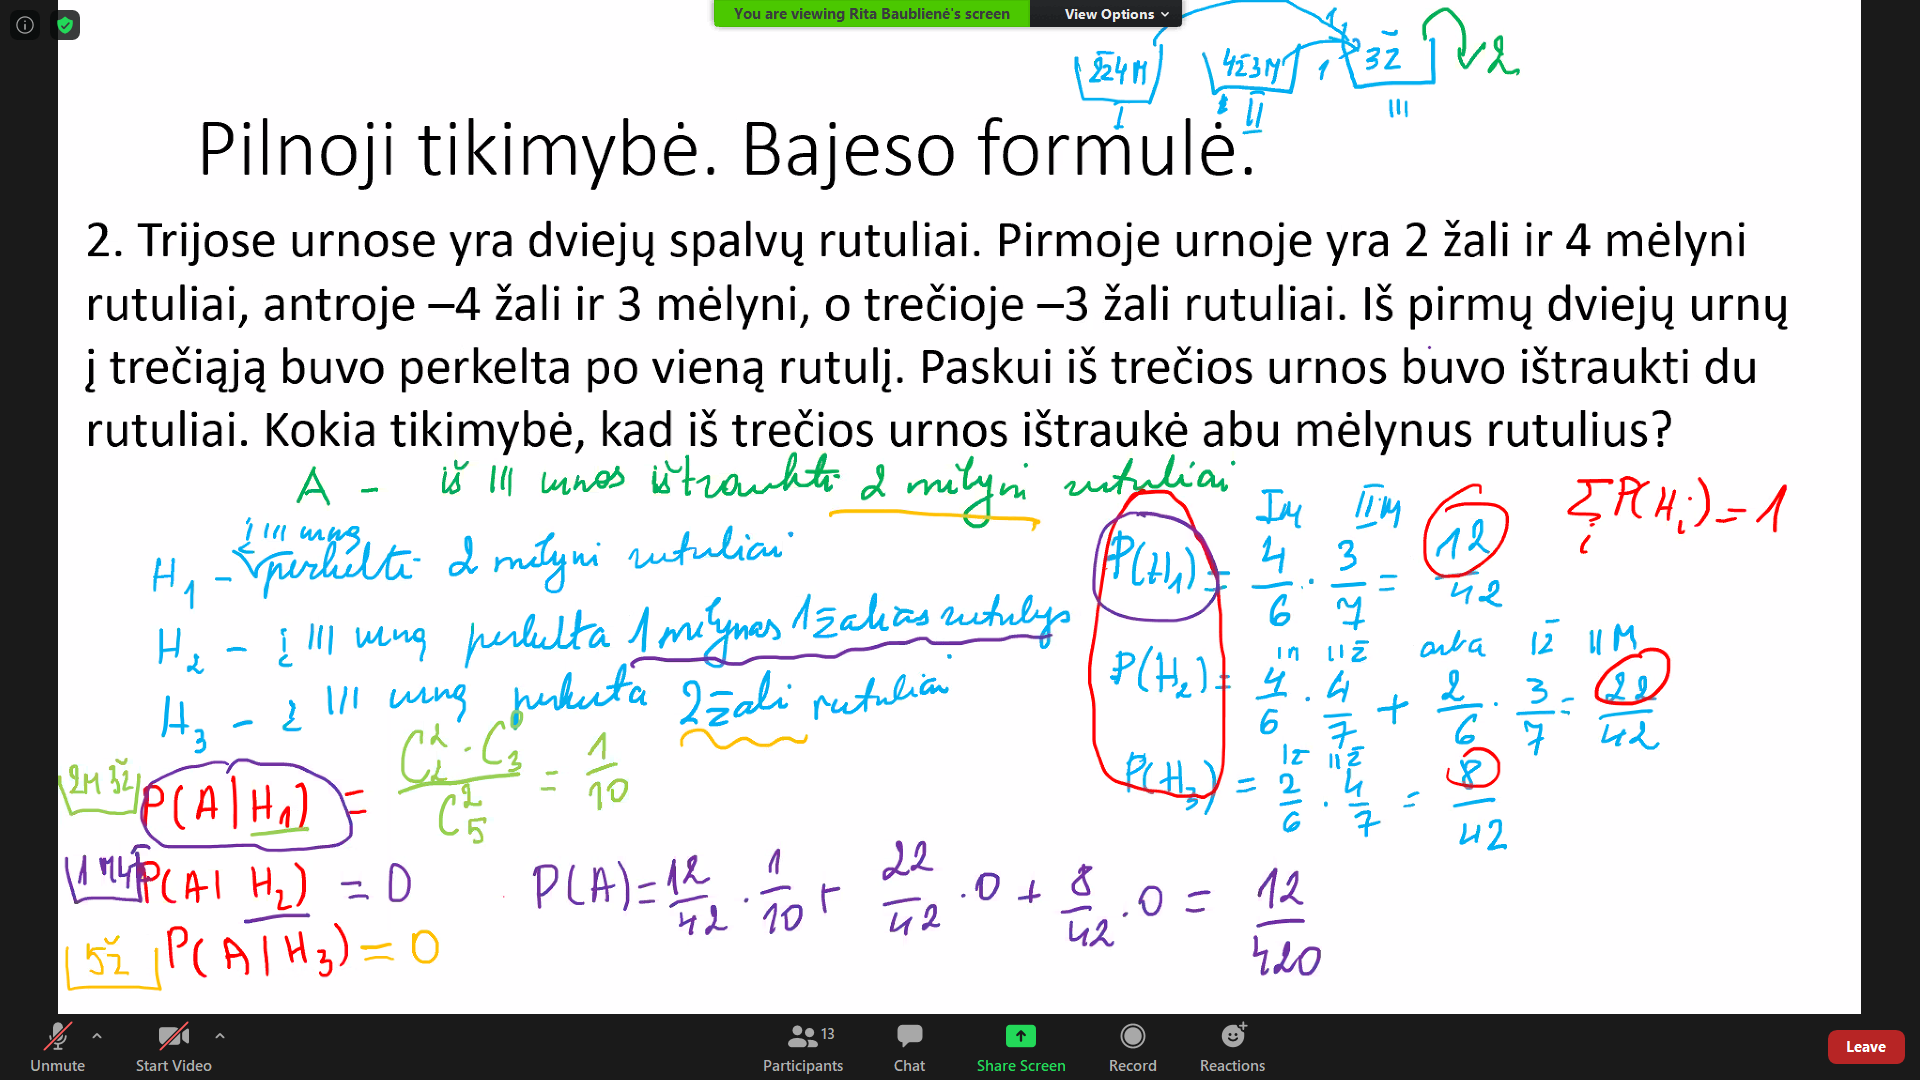 You are viewing Rita Baublienė's screen View Options
2Ž4M 4Ž3M 1 3Ž 2
I II III
Pilnoji tikimybė. Bajeso formulė.
2. Trijose urnose yra dviejų spalvų rutuliai. Pirmoje urnoje yra 2 žali ir 4 mėlyni
rutuliai, antroje –4 žali ir 3 mėlyni, o trečioje –3 žali rutuliai. Iš pirmų dviejų urnų
į trečiąją buvo perkelta po vieną rutulį. Paskui iš trečios urnos buvo ištraukti du
rutuliai. Kokia tikimybė, kad iš trečios urnos ištraukė abu mėlynus rutulius?
A – iš III urnos ištraukti 2 mėlyni rutuliai
į III urną
H₁ – perkelti 2 mėlyni rutuliai
H₂ – į III urną perkelta 1 mėlynas 1 žalias rutulys
H₃ – į III urną perkelta 2 žali rutuliai
IM IIM
P(H₁) = 4/6 · 3/7 = 12/42
Σᵢ P(Hᵢ) = 1
IM IIŽ arba IŽ IIM
P(H₂) = 4/6 · 4/7 + 2/6 · 3/7 = 22/42
IŽ IIŽ
P(H₃) = 2/6 · 4/7 = 8/42
2M 3Ž P(A|H₁) = C₂² · C₃⁰ / C₅² = 1/10
1M4Ž P(A|H₂) = 0
P(A) = 12/42 · 1/10 + 22/42 · 0 + 8/42 · 0 = 12/420
5Ž P(A|H₃) = 0
Unmute Start Video Participants 13 Chat Share Screen Record Reactions Leave